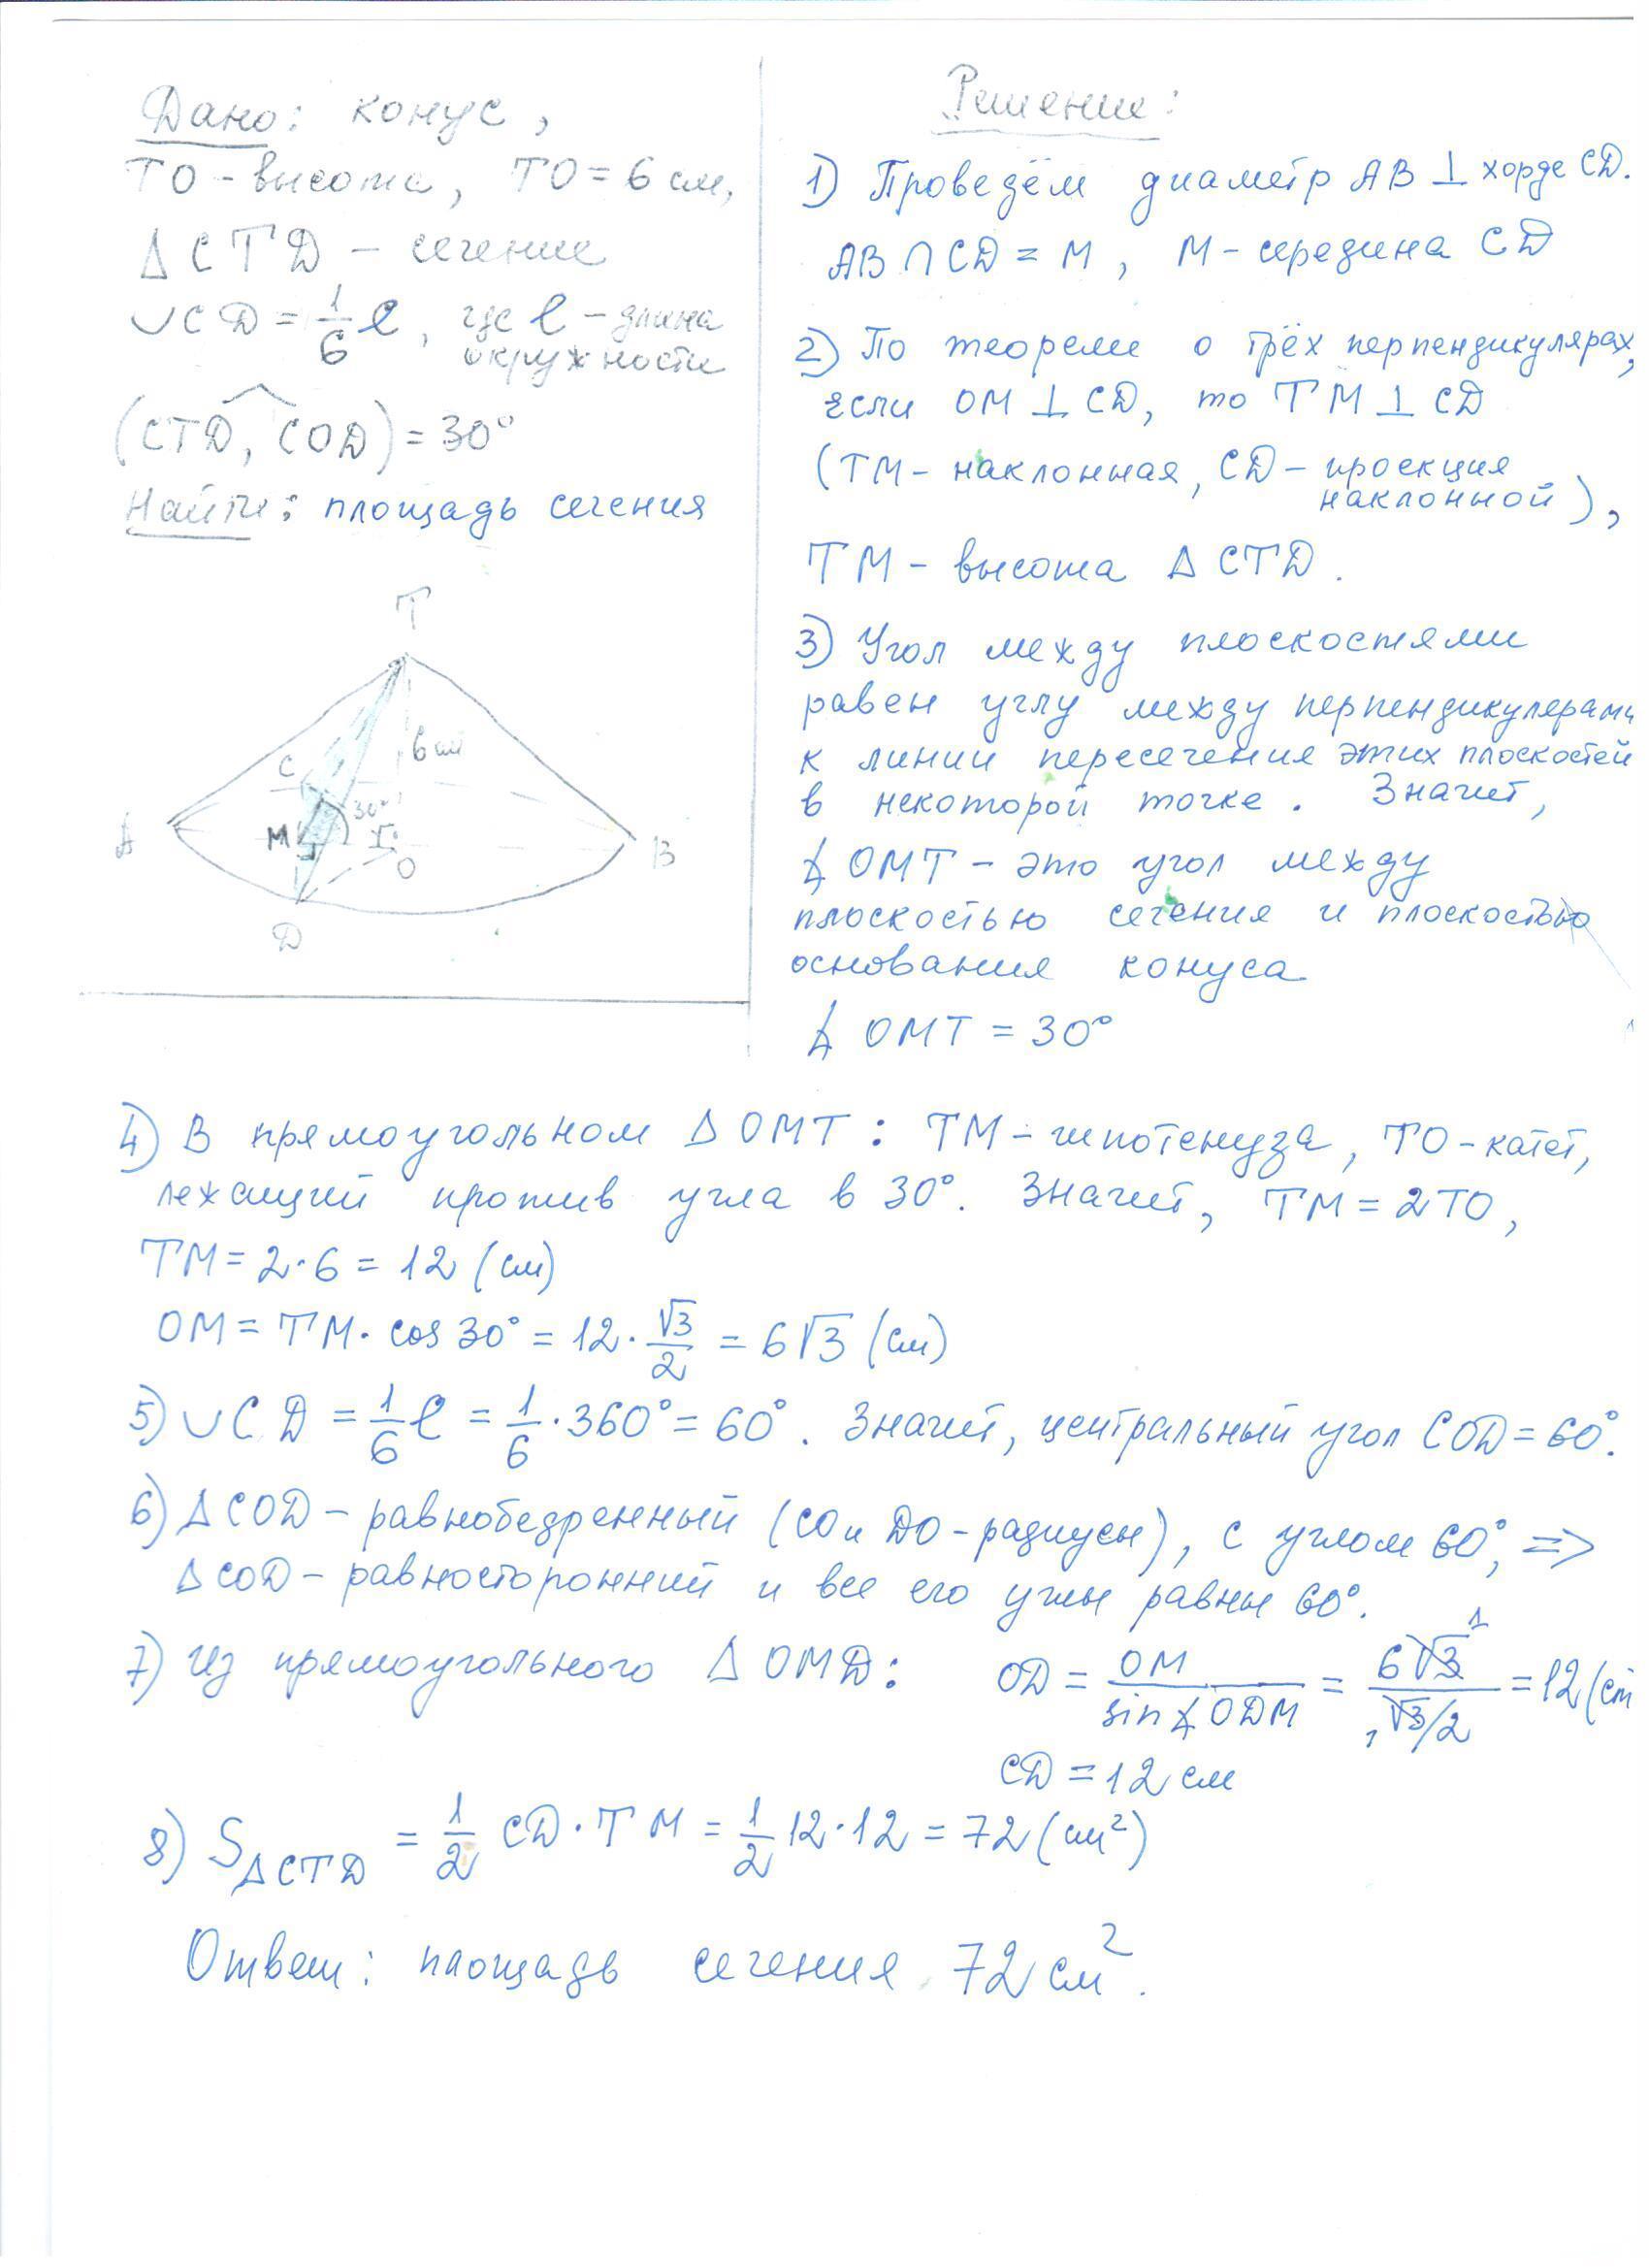 Дано: конус,
ТО - высота, ТО = 6 см,
Δ CTD - сечение
∪CD = 1/6 ℓ, где ℓ - длина
окружности
(CTD, COD) = 30°
Найти: площадь сечения
T
6 см
C
30°
A
M
O
B
D
Решение:
1) Проведём диаметр AB ⊥ хорде CD.
AB ∩ CD = M, M - середина CD
2) По теореме о трёх перпендикулярах,
если OM ⊥ CD, то TM ⊥ CD
(TM - наклонная, CD - проекция
наклонной),
TM - высота Δ CTD.
3) Угол между плоскостями
равен углу между перпендикулерами
к линии пересечения этих плоскостей
в некоторой точке. Значит,
∡ OMT - это угол между
плоскостью сечения и плоскостью
основания конуса
∡ OMT = 30°
4) В прямоугольном Δ OMT: TM - гипотенуза, TO - катет,
лежащий против угла в 30°. Значит, TM = 2TO,
TM = 2·6 = 12 (см)
OM = TM · cos 30° = 12 · √3/2 = 6√3 (см)
5) ∪CD = 1/6 ℓ = 1/6 · 360° = 60°. Значит, центральный угол COD = 60°.
6) ΔCOD - равнобедренный (CO и DO - радиусы), с углом 60°, =>
ΔCOD - равносторонний и все его углы равны 60°.
7) Из прямоугольного Δ OMD: OD = OM / sin∡ODM = 6√3 / √3/2 = 12 (см
CD = 12 см
8) S ΔCTD = 1/2 CD · TM = 1/2 12·12 = 72 (см²)
Ответ: площадь сечения 72 см².